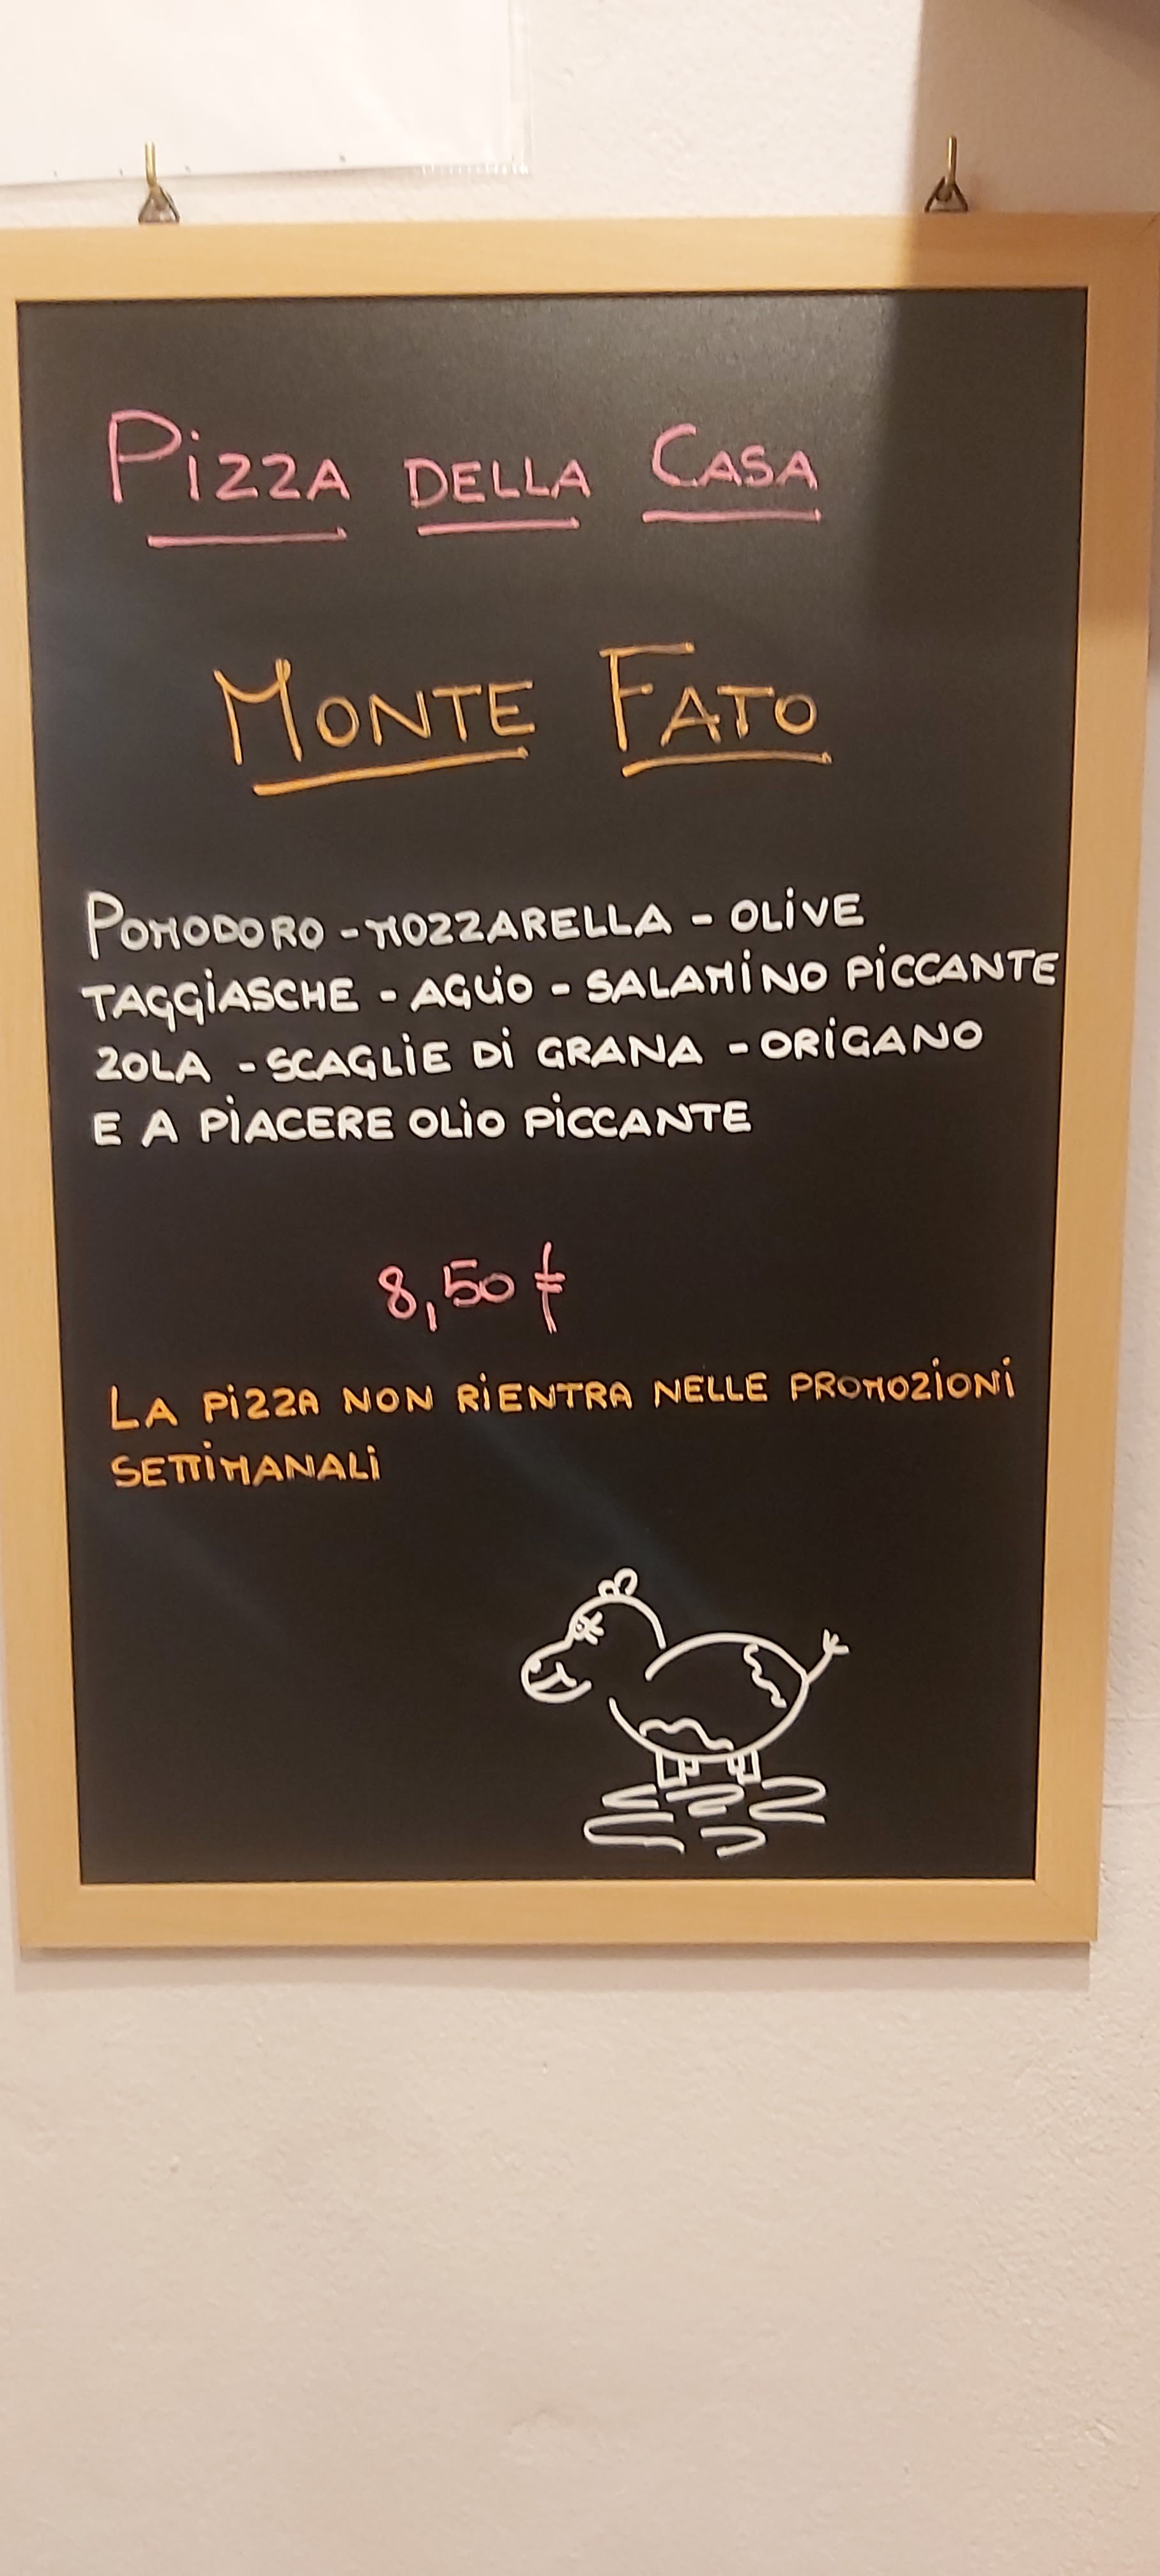 Pizza della Casa
Monte Fato
Pomodoro - mozzarella - olive
taggiasche - aglio - salamino piccante
zola - scaglie di grana - origano
e a piacere olio piccante
8,50 €
La pizza non rientra nelle promozioni
settimanali